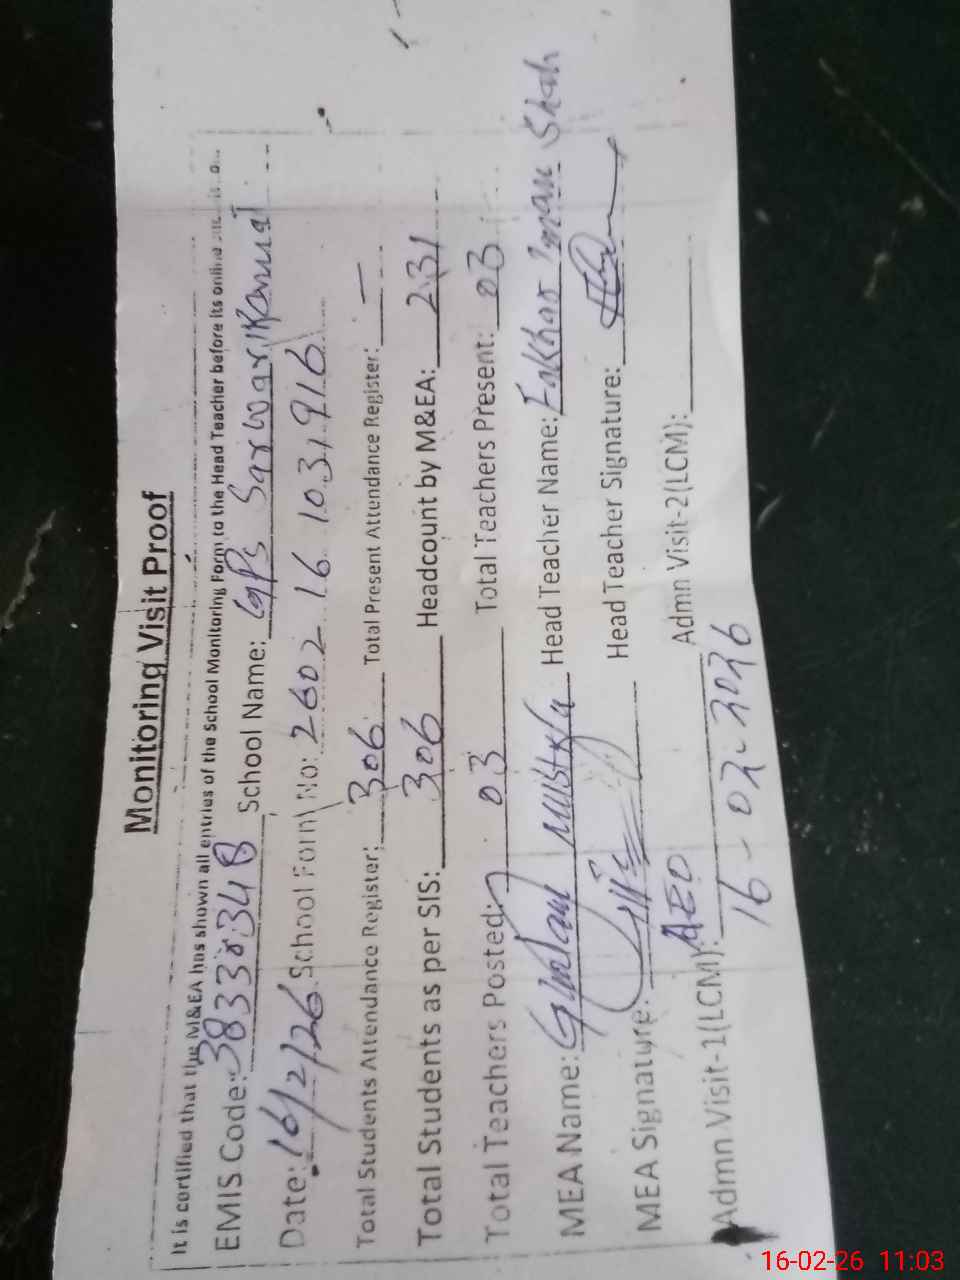 Monitoring Visit Proof
It is certified that the M&EA has shown all entries of the School Monitoring Form to the Head Teacher before its online
EMIS Code: 38330348 School Name: GPS Sarwar
Date: 16/2/26 School Form No: 2602 16 103916
Total Students Attendance Register: 306 Total Present Attendance Register: —
Total Students as per SIS: 306 Headcount by M&EA: 231
Total Teachers Posted: 03 Total Teachers Present: 03
MEA Name: Ghulam Mustafa Head Teacher Name: Fakhar Iman Shah
MEA Signature: Head Teacher Signature:
Admn Visit-1(LCM): AEO Admn Visit-2(LCM):
16-02-2026
16-02-26 11:03